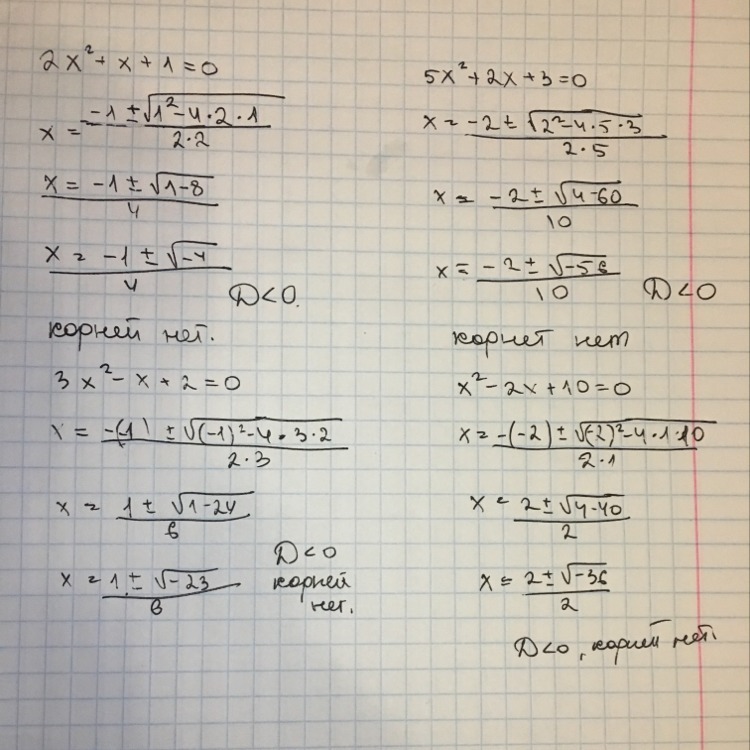 2x²+x+1=0
x = (-1 ± √(1²-4·2·1)) / (2·2)
x = (-1 ± √(1-8)) / 4
x = (-1 ± √(-4)) / 4
D<0.
корней нет.
3x²-x+2=0
x = (-(-1) ± √((-1)²-4·3·2)) / (2·3)
x = (1 ± √(1-24)) / 6
x = (1 ± √(-23)) / 6
D<0
корней
нет.
5x²+2x+3=0
x = (-2 ± √(2²-4·5·3)) / (2·5)
x = (-2 ± √(4-60)) / 10
x = (-2 ± √(-56)) / 10
D<0
корней нет
x²-2x+10=0
x = (-(-2) ± √((-2)²-4·1·10)) / (2·1)
x = (2 ± √(4-40)) / 2
x = (2 ± √(-36)) / 2
D<0, корней нет.